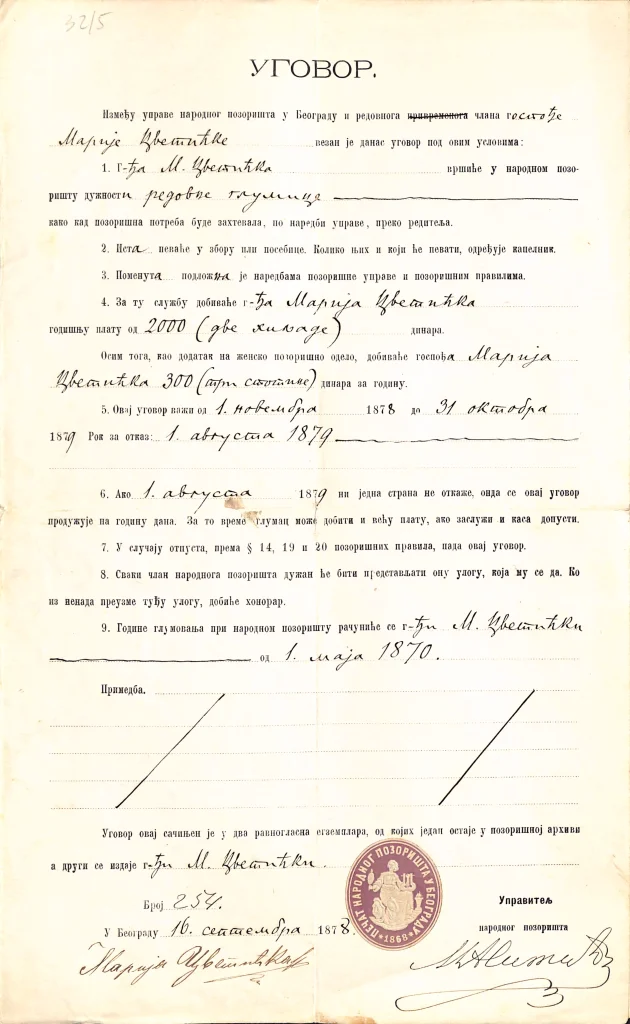 32/5
УГОВОР.
Између управе народног позоришта у Београду и редовнога привременога члана госпође
Марије Цветићке везан је данас уговор под овим условима:
1. Г-ђа М. Цветићка вршиће у народном позо-
ришту дужности редовне глумице
како кад позоришна потреба буде захтевала, по наредби управе, преко редитеља.
2. Иста певаће у збору или посебице. Колико њих и који ће певати, одређује капелник.
3. Поменута подложна је наредбама позоришне управе и позоришним правилима.
4. За ту службу добиваће г-ђа Марија Цветићка
годишњу плату од 2000 (две хиљаде) динара.
Осим тога, као додатак на женско позоришно одело, добиваће госпођа Марија
Цветићка 300 (три стотине) динара за годину.
5. Овај уговор важи од 1. новембра 1878 до 31 октобра
1879 Рок за отказ: 1. августа 1879
6. Ако 1. августа 1879 ни једна страна не откаже, онда се овај уговор
продужује на годину дана. За то време глумац може добити и већу плату, ако заслужи и каса допусти.
7. У случају отпуста, према § 14, 19 и 20 позоришних правила, пада овај уговор.
8. Сваки члан народнога позоришта дужан ће бити представљати ону улогу, која му се да. Ко
из ненада преузме туђу улогу, добиће хонорар.
9. Године глумовања при народном позоришту рачуниће се г-ђи М. Цветићки
од 1. маја 1870.
Примедба.
Уговор овај сачињен је у два равногласна егземплара, од којих један остаје у позоришној архиви
а други се издаје г-ђи М. Цветићки.
Број 254.
У Београду 16. септембра 1878.
Марија Цветићка
ПЕЧАТ НАРОДНОГ ПОЗОРИШТА У БЕОГРАДУ
1868
Управитељ
народног позоришта